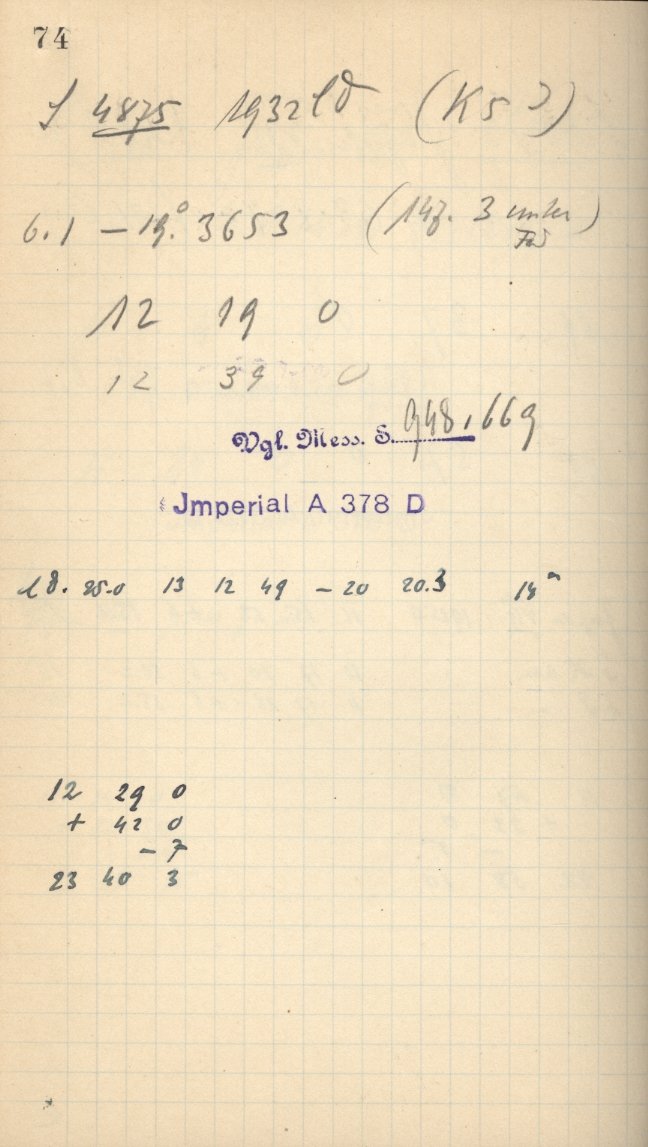 74
4875 1932 (K5 )
6.1 – 19.° 3653 (147. 3 unter
12 19 0
12 39 0
Vgl. Mess. S. 948, 669
Jmperial A 378 D
18. 25.0 13 12 49 – 20 20.3 14ᵐ
12 29 0
+ 42 0
– 7
23 40 3